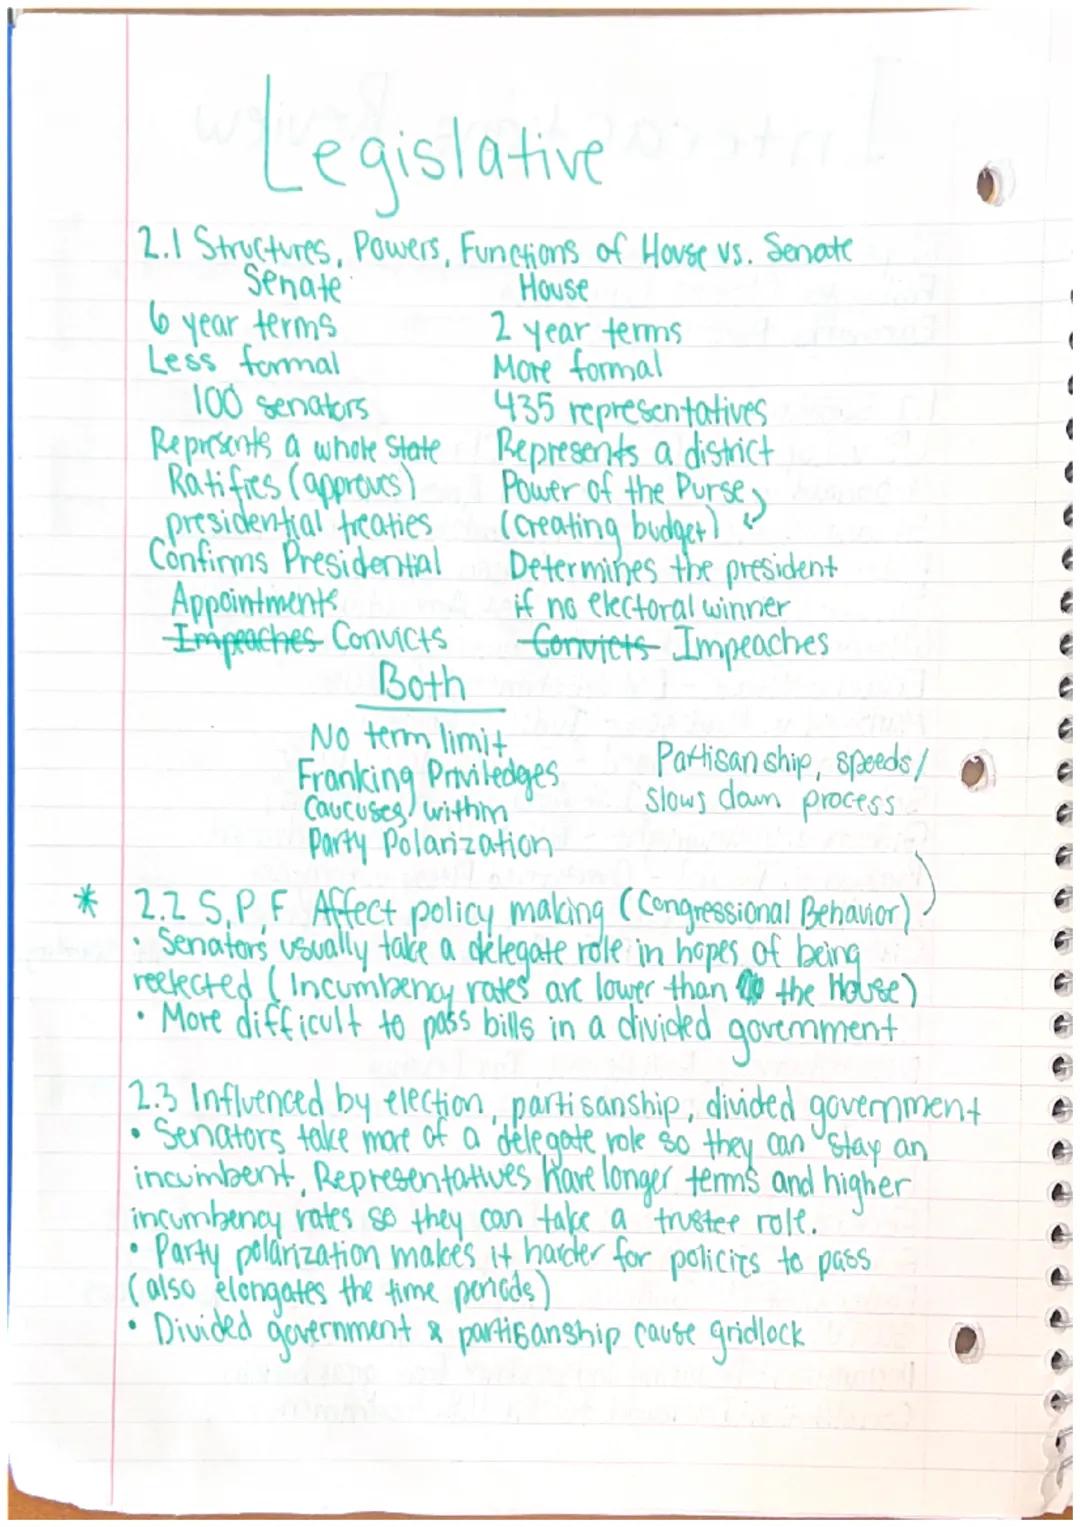 Legislative
2.1 Structures, Powers, Functions of House vs. Senate
Senate House
6 year terms 2 year terms
Less formal More formal
100 senators 435 representatives
Represents a whole State Represents a district
Ratifies (approves) Power of the Purse
presidential treaties (creating budget)
Confirms Presidential Determines the president
Appointments if no electoral winner
Impeaches Convicts Convicts Impeaches
Both
No term limit
Franking Priviledges Partisanship, speeds/
Caucuses within slows down process
Party Polarization
* 2.2 S,P,F Affect policy making (Congressional Behavior)
• Senators usually take a delegate role in hopes of being
reelected (Incumbency rates are lower than the House)
• More difficult to pass bills in a divided government
2.3 Influenced by election, partisanship, divided government
• Senators take more of a delegate role so they can stay an
incumbent, Representatives have longer terms and higher
incumbency rates so they can take a trustee role.
• Party polarization makes it harder for policies to pass
(also elongates the time periods)
• Divided government & partisanship cause gridlock